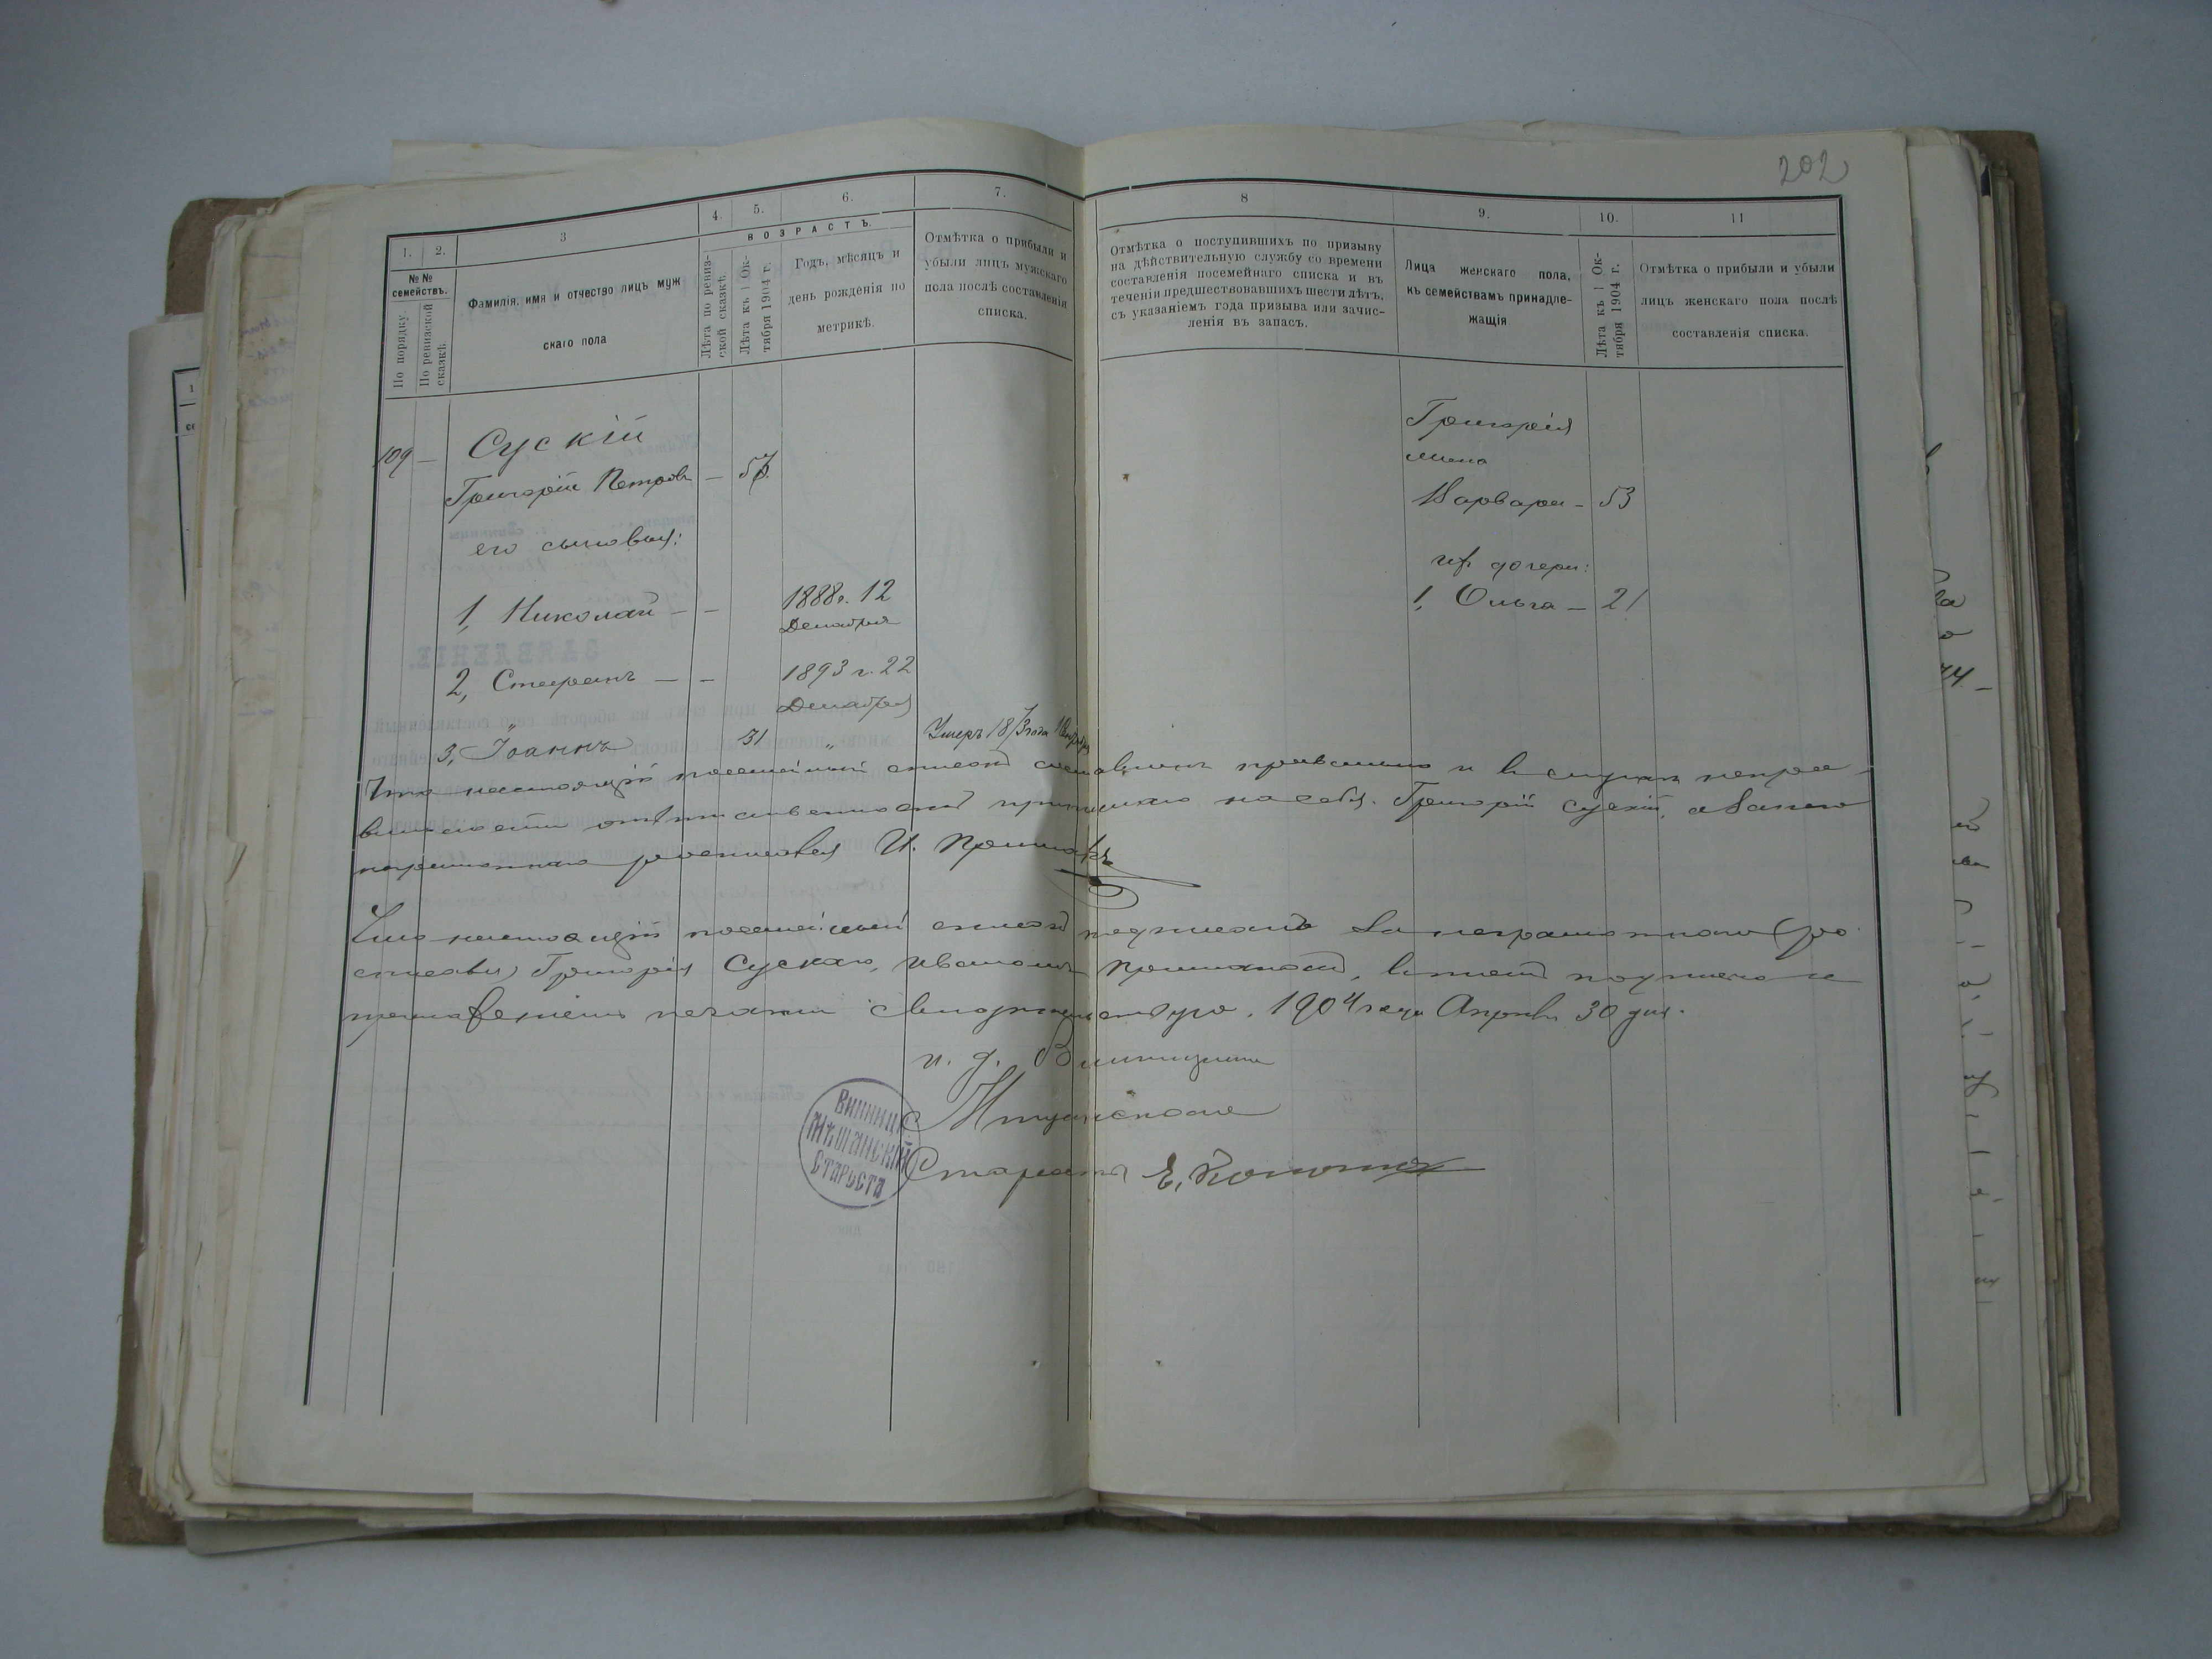 202
1. 2. 3 4. 5. 6. 7. 8 9. 10. 11
ВОЗРАСТЪ.
№№ семействъ.
По порядку.
По ревизской сказкѣ.
Фамилія, имя и отчество лицъ муж
скаго пола
Лѣта по ревиз-
ской сказкѣ.
Лѣта къ 1 Ок-
тября 1904 г.
Годъ, мѣсяцъ и
день рожденія по
метрикѣ.
Отмѣтка о прибыли и
убыли лицъ мужскаго
пола послѣ составленія
списка.
Отмѣтка о поступившихъ по призыву
на дѣйствительную службу со времени
составленія посемейнаго списка и въ
теченіи предшествовавшихъ шести лѣтъ,
съ указаніемъ года призыва или зачис-
ленія въ запасъ.
Лица женскаго пола,
къ семействамъ принадле-
жащія
Лѣта къ 1 Ок-
тября 1904 г.
Отмѣтка о прибыли и убыли
лицъ женскаго пола послѣ
составленія списка.
109 — Сускій
Григорій Петровъ —
его сыновья:
1, Николай — — 1888 г. 12
Декабря
2, Стефанъ — — 1893 г. 22
Декабря
3, Іоаннъ 31 " Умеръ
Григорія
жена
Варвара — 53
их дочери:
1, Ольга — 21
Что настоящій посемейный списокъ составленъ правильно и въ случаѣ непра-
вильности отвѣтственность принимаю на себя. Григорій Сускій, а за него
неграмотнаго росписался И.
Что настоящій посемейный списокъ подписанъ за неграмотнаго (ро
списавы) Григорія Сускаго, Иваномъ въ томъ подписью и
приложеніемъ печати свидѣтельствую. 1904 года Апрѣля 30 дня.
и. д. Винницкаго
Мѣщанскаго
Старосты Е.
ВИННИЦ
МѢЩАНСКІЙ
СТАРОСТА